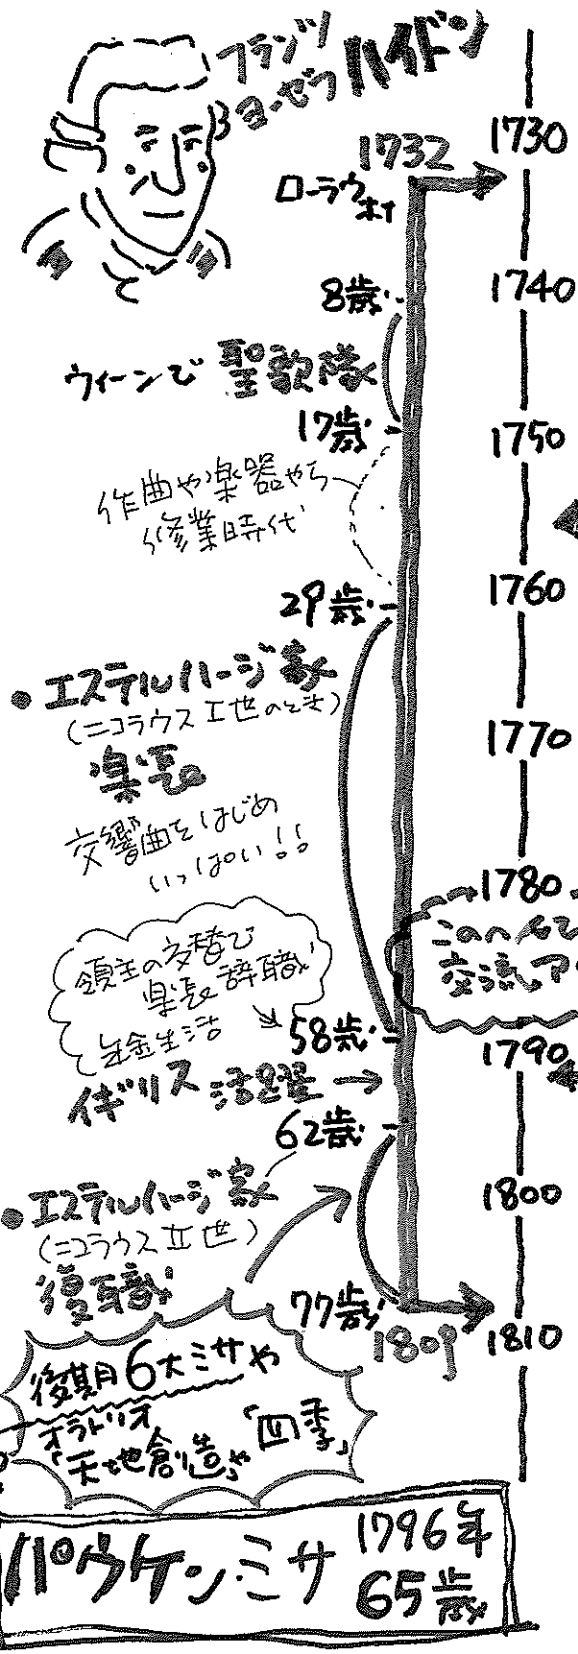 フランツ
ヨーゼフ
ハイドン
1730
1732
ローラウ村
1740
8歳
ウィーンで 聖歌隊
17歳
1750
作曲や楽器やら
修業時代
1760
29歳
・エステルハージ家
(ニコラウスⅠ世のとき)
楽長
1770
交響曲をはじめ
いっぱい!!
1780
このへんで
交流ア
領主の交替で
楽長辞職
年金生活
58歳
1790
イギリス活躍→
62歳
・エステルハージ家
(ニコラウスⅡ世)
復職
1800
77歳
1809
1810
後期6大ミサや
オラトリオ
「天地創造」や「四季」
パウケン・ミサ
1796年
65歳